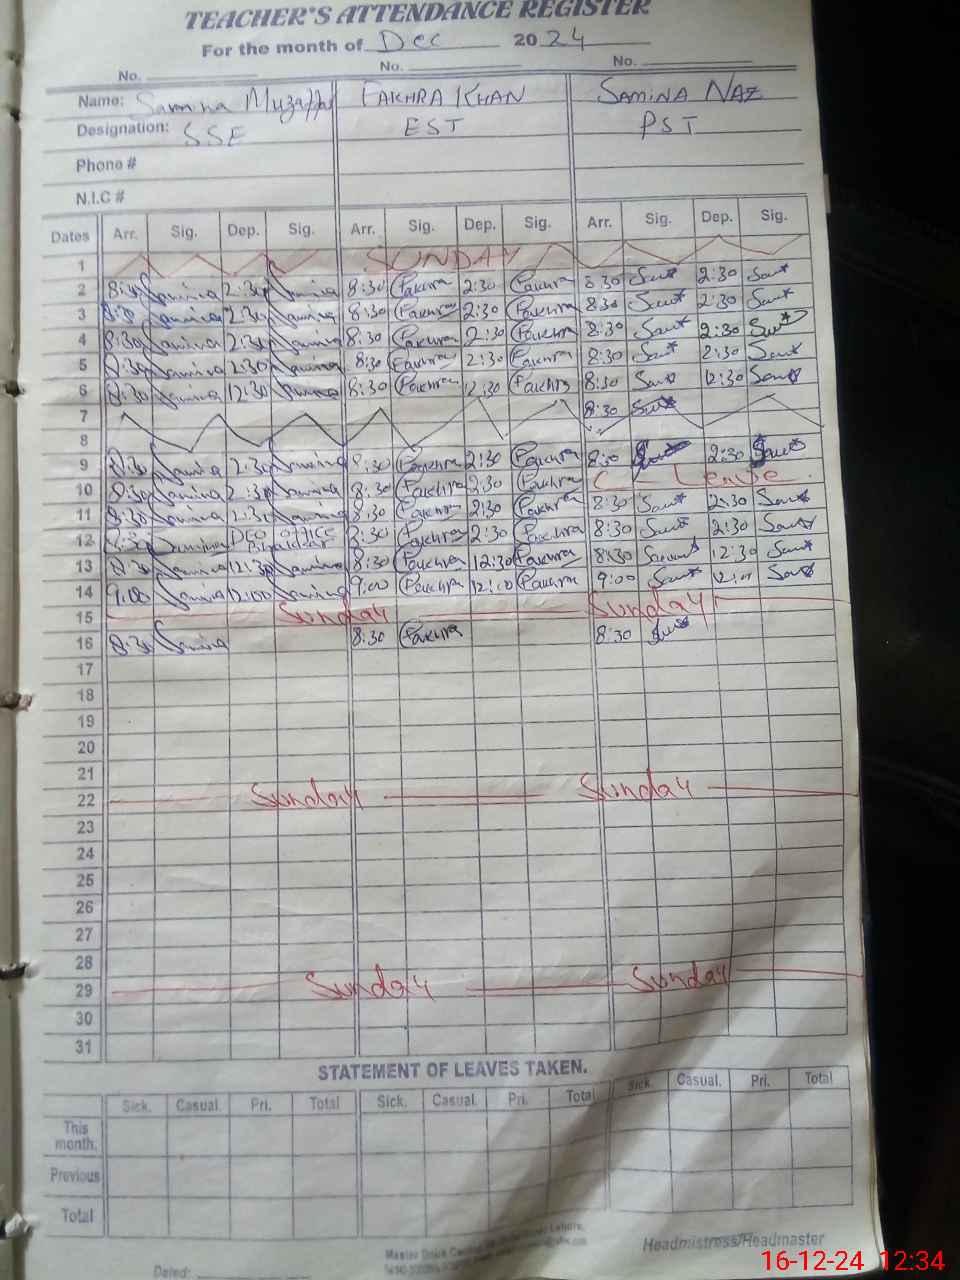 TEACHER'S ATTENDANCE REGISTER
For the month of Dec 2024
No. No. No.
Name: Samina Muzaffar FAKHRA KHAN SAMINA NAZ
Designation: SSE EST PST
Phone #
N.I.C #
Dates Arr. Sig. Dep. Sig. Arr. Sig. Dep. Sig. Arr. Sig. Dep. Sig.
1 SUNDAY
2 8:30 Samina 2:30 Samina 8:30 Fakhra 2:30 Fakhra 8:30 2:30
3 8:30 Samina 2:30 Samina 8:30 Fakhra 2:30 Fakhra 8:30 2:30
4 8:30 Samina 2:30 Samina 8:30 Fakhra 2:30 Fakhra 8:30 2:30
5 8:30 Samina 2:30 Samina 8:30 Fakhra 2:30 Fakhra 8:30 2:30
6 8:30 Samina 12:30 Samina 8:30 Fakhra 12:30 Fakhra 8:30 12:30
7 8:30
8
9 8:30 Samina 2:30 Samina 8:30 Fakhra 2:30 Fakhra 8:30 2:30
10 8:30 Samina 2:30 Samina 8:30 Fakhra 2:30 Fakhra C Leave
11 8:30 Samina 2:30 Samina 8:30 Fakhra 2:30 Fakhra 8:30 2:30
12 8:30 Samina DEO office 8:30 Fakhra 2:30 Fakhra 8:30 2:30
13 8:30 Samina 12:30 Samina 8:30 Fakhra 12:30 Fakhra 8:30 12:30
14 9:00 Samina 12:00 Samina 9:00 Fakhra 12:00 Fakhra 9:00
15 Sunday Sunday
16 8:30 Samina 8:30 Fakhra 8:30
17
18
19
20
21
22 Sunday Sunday
23
24
25
26
27
28
29 Sunday Sunday
30
31
STATEMENT OF LEAVES TAKEN.
Sick. Casual. Pri. Total Sick. Casual. Pri. Total Sick. Casual. Pri. Total
This month.
Previous
Total
Headmistress/Headmaster
Dated:
16-12-24 12:34